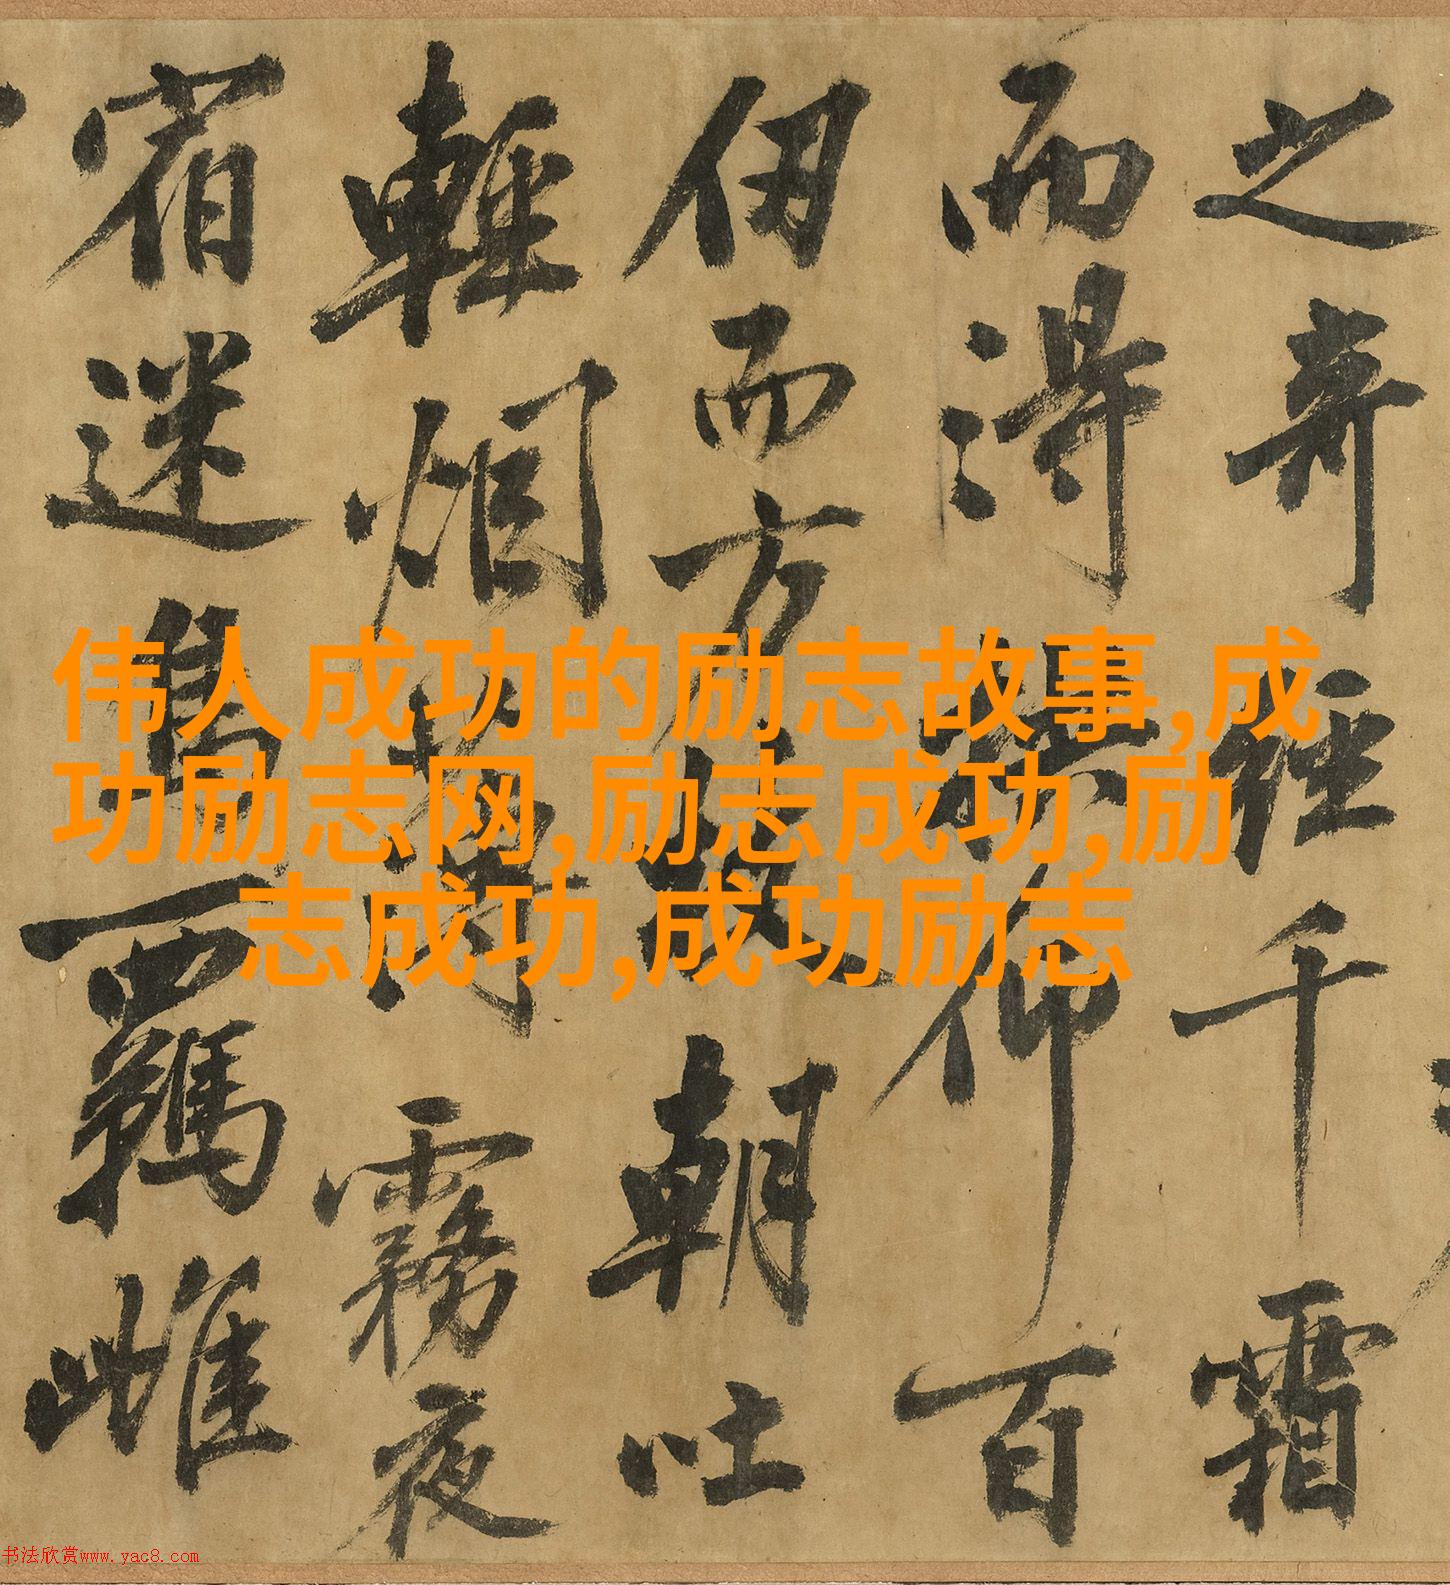 之奇經千霜
而得拱仰百
仞而方致朝吐
輕烟薄霧夜
宿迷鳥羈雌
伟人成功的励志故事,成
功励志网,励志成功,励
志成功,成功励志
书法欣赏www.yac8.com